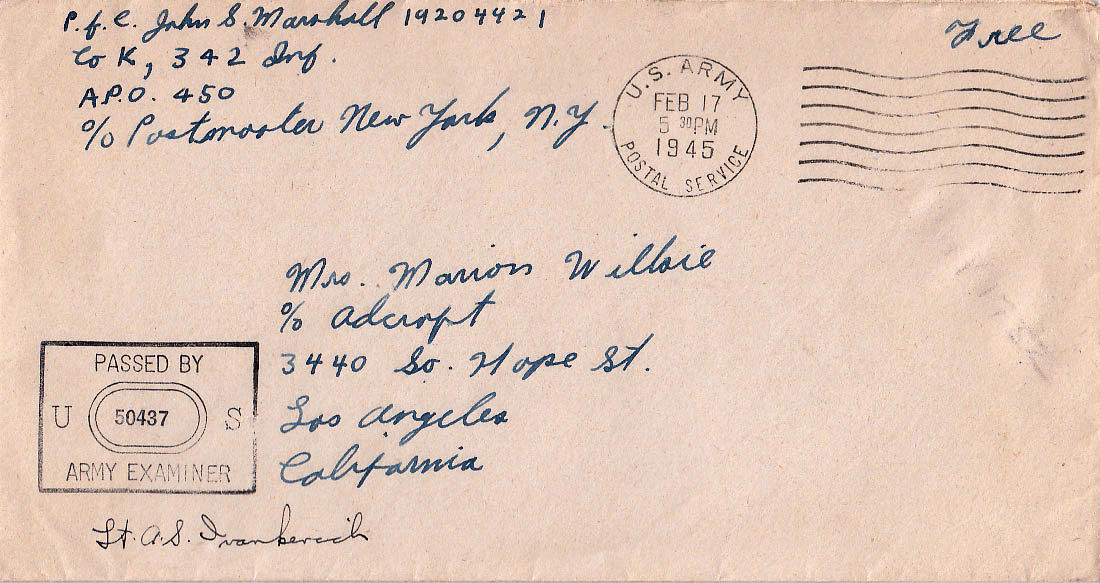 P.f.C. John S. Marshall 19204421
Co K, 342 Inf.
A.P.O. 450
% Postmaster New York, N.Y.
Free
U.S. ARMY
FEB 17
5 30PM
1945
POSTAL SERVICE
Mrs. Marion Willsie
% Adcraft
3440 So. Hope St.
Los Angeles
California
PASSED BY
U 50437 S
ARMY EXAMINER
Lt. A.S.